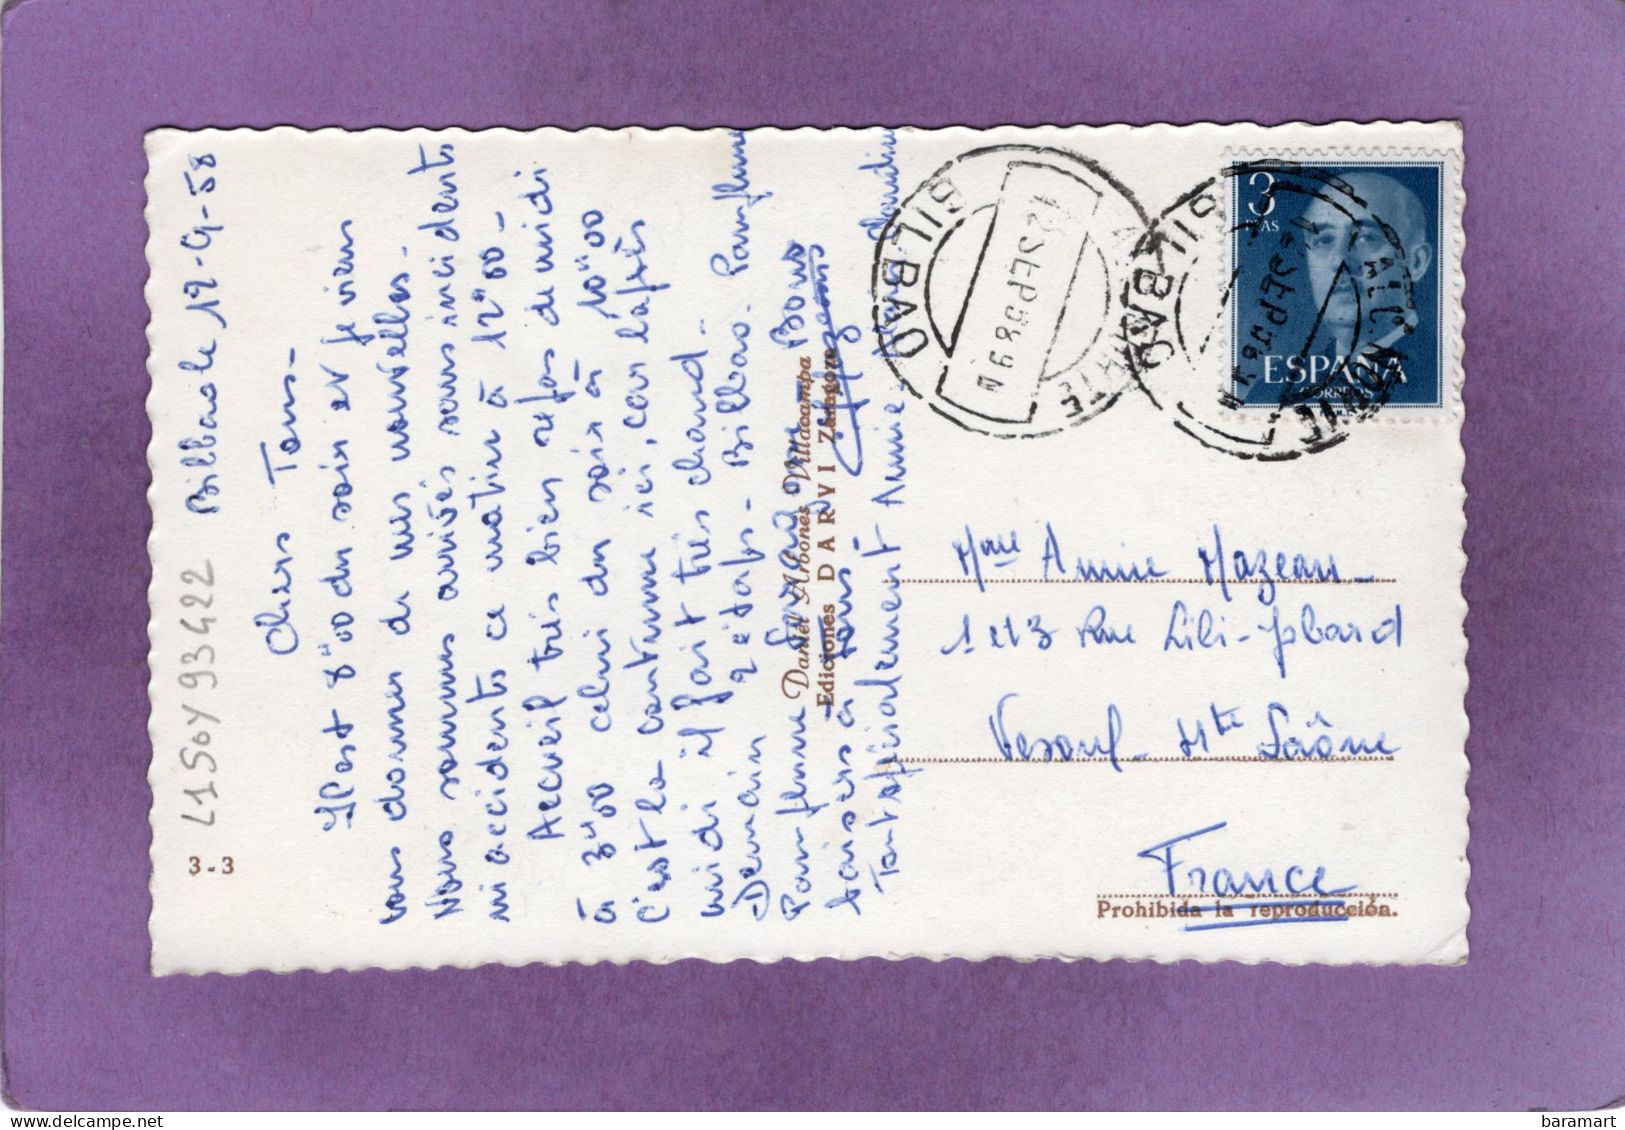 Bilbao le 12-9-58
Chers Tous-
Il est 8"00 du soir et je viens
vous donner de mes nouvelles.
Nous sommes arrivés sans incidents
ni accidents ce matin à 12"00-
Accueil très bien repas de midi
à 3"00 celui du soir à 10"00
C'est la coutume ici, car l'après
midi il fait très chaud-
Demain 2 étaps- Bilbao. Pamplune
Pamplune Bons
baisers à tous
Tout spécialement Annie
L1SoY93422
3-3
Daniel Arbonés Villacampa
Ediciones DARVI Zaragoza
BILBAO
12 SEP 58 9 N
BILBAO
ALC. NORTE
3
PTAS
ESPAÑA
CORREOS
Mme Annie Mazeau-
1 et 3 Rue Lili-Jobard
Vesoul- Hte Saône
France
Prohibida la reproducción.
delcampe.net
baramart